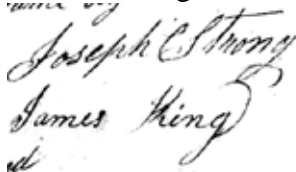 Joseph C Strong
James King